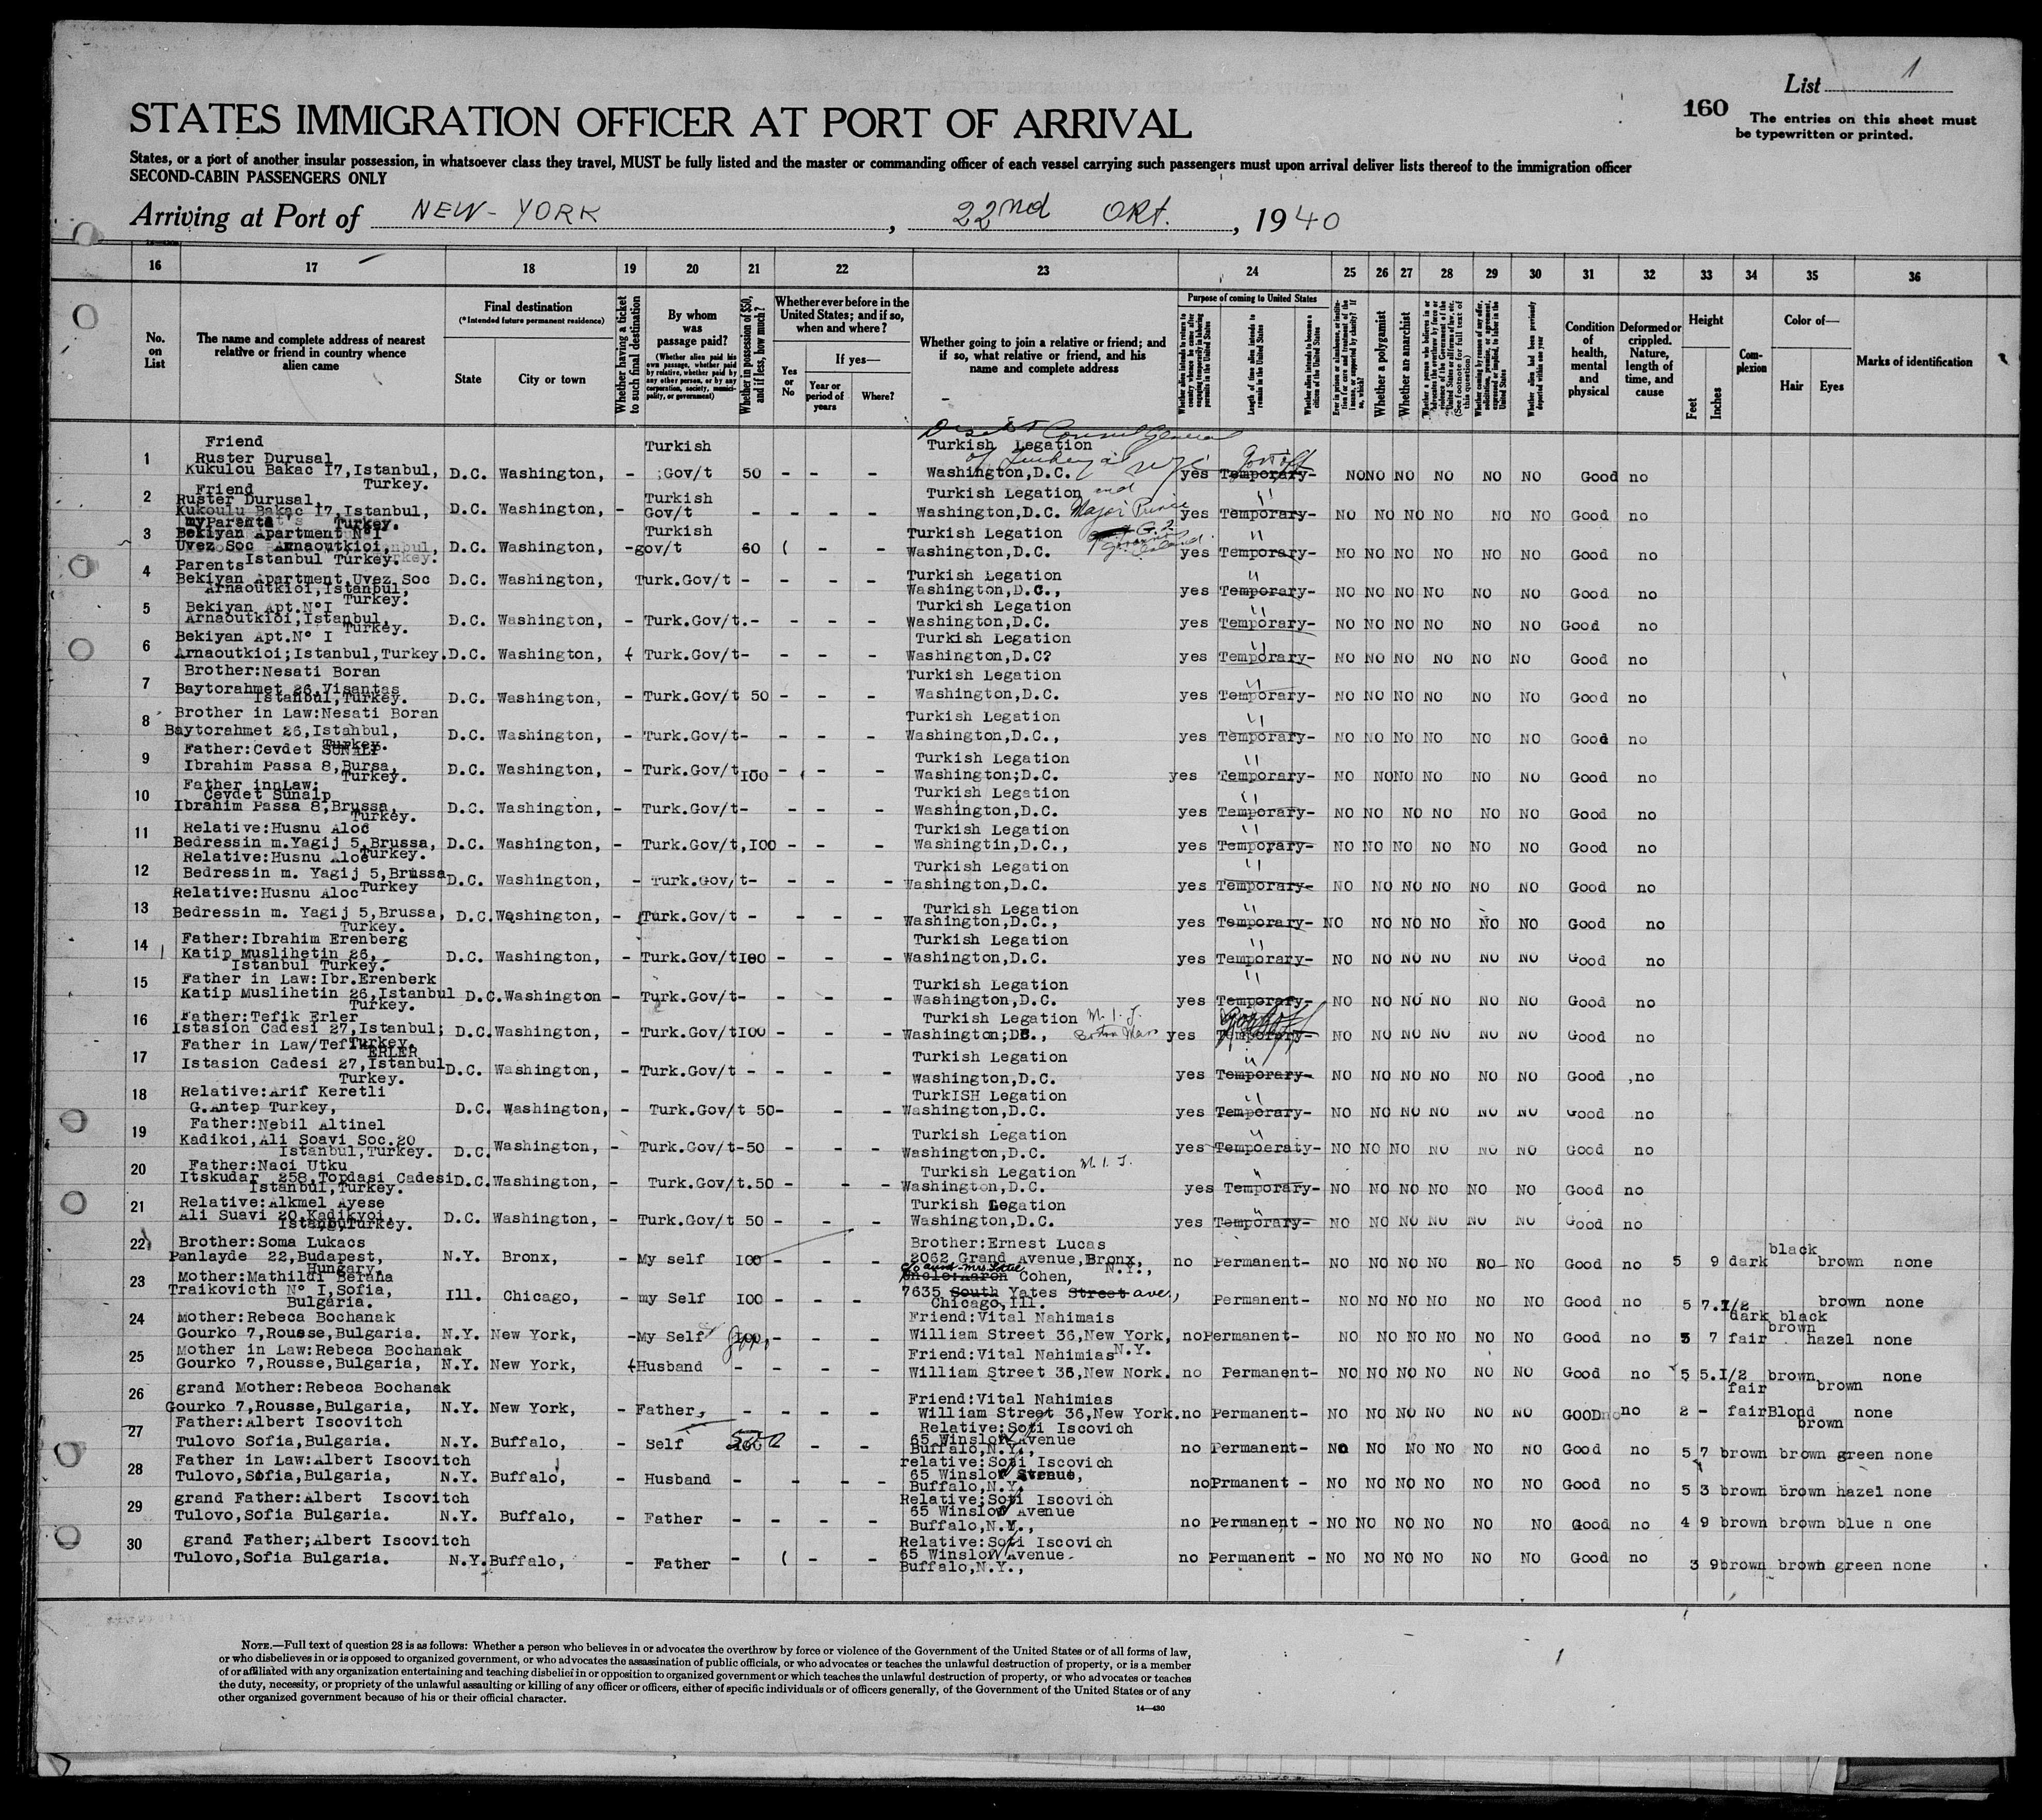 List 1
160
The entries on this sheet must
be typewritten or printed.
STATES IMMIGRATION OFFICER AT PORT OF ARRIVAL
States, or a port of another insular possession, in whatsoever class they travel, MUST be fully listed and the master or commanding officer of each vessel carrying such passengers must upon arrival deliver lists thereof to the immigration officer
SECOND-CABIN PASSENGERS ONLY
Arriving at Port of NEW-YORK, 22nd OKt., 1940
16 17 18 19 20 21 22 23 24 25 26 27 28 29 30 31 32 33 34 35 36
No. on List
The name and complete address of nearest relative or friend in country whence alien came
Final destination
(*Intended future permanent residence)
State
City or town
Whether having a ticket to such final destination
By whom was passage paid?
(Whether alien paid his own passage, whether paid by relative, whether paid by any other person, or by any corporation, society, municipality, or government)
Whether in possession of $50, and if less, how much?
Whether ever before in the United States; and if so, when and where?
Yes or No
If yes—
Year or period of years
Where?
Whether going to join a relative or friend; and if so, what relative or friend, and his name and complete address
Purpose of coming to United States
Length of time alien intends to remain in the United States
Whether alien intends to become a citizen of the United States
Whether a polygamist
Whether an anarchist
Condition of health, mental and physical
Deformed or crippled. Nature, length of time, and cause
Height
Feet
Inches
Complexion
Color of—
Hair
Eyes
Marks of identification
1 Friend Ruster Durusal Kukulou Bakac 17,Istanbul, Turkey. D.C. Washington, - Turkish Gov/t 50 - - - Turkish Legation Washington,D.C. yes Temporary- NO NO NO NO NO NO Good no
2 Friend Ruster Durusal, Kukoulu Bakac 17,Istanbul, Turkey. D.C. Washington, - Turkish Gov/t - - - - Turkish Legation Washington,D.C. Major yes Temporary- NO NO NO NO NO NO Good no
3 Bekiyan Apartment N°I Uvez Soc Arnaoutkioi, Istanbul Turkey. D.C. Washington, - Turkish gov/t 60 - - Turkish Legation Washington,D.C. yes Temporary- NO NO NO NO NO NO Good no
4 Parents Bekiyan Apartment,Uvez Soc Arnaoutkioi,Istanbul, Turkey. D.C. Washington, Turk.Gov/t - - - - Turkish Legation Washington,D.C., yes Temporary- NO NO NO NO NO NO Good no
5 Bekiyan Apt.N°I Arnaoutkioi,Istanbul, Turkey. D.C. Washington, - Turk.Gov/t.- - - - Turkish Legation Washington,D.C. yes Temporary- NO NO NO NO NO NO Good no
6 Bekiyan Apt.N° I Arnaoutkioi;Istanbul,Turkey. D.C. Washington, Turk.Gov/t- - - - Turkish Legation Washington,D.C? yes Temporary- NO NO NO NO NO NO Good no
7 Brother:Nesati Boran Baytorahmet 26,Visantas Istanbul,Turkey. D.C. Washington, - Turk.Gov/t 50 - - - Turkish Legation Washington,D.C. yes Temporary- NO NO NO NO NO NO Good no
8 Brother in Law:Nesati Boran Baytorahmet 26,Istahbul, Turkey. D.C. Washington, - Turk.Gov/t- - - - Turkish Legation Washington,D.C., yes Temporary- NO NO NO NO NO NO Good no
9 Father:Cevdet SUNALP Ibrahim Passa 8,Bursa, Turkey. D.C. Washington, - Turk.Gov/t I00 - - - Turkish Legation Washington;D.C. yes Temporary- NO NO NO NO NO NO Good no
10 Father innLaw: Cevdet Sunalp Ibrahim Passa 8,Brussa, Turkey. D.C. Washington, - Turk.Gov/t- - - - Turkish Legation Washington,D.C. yes Temporary- NO NO NO NO NO NO Good no
11 Relative:Husnu Aloc Bedressin m.Yagij 5,Brussa, Turkey. D.C. Washington, - Turk.Gov/t,I00 - - - Turkish Legation Washingtin,D.C., yes Temporary- NO NO NO NO NO NO Good no
12 Relative:Husnu Aloc Bedressin m. Yagij 5,Brussa Turkey D.C. Washington, - Turk.Gov/t- - - - Turkish Legation Washington,D.C. yes Temporary- NO NO NO NO NO NO Good no
13 Relative:Husnu Aloc Bedressin m. Yagij 5,Brussa, Turkey. D.C. Washington, - Turk.Gov/t - - - - Turkish Legation Washington,D.C., yes Temporary- NO NO NO NO NO NO Good no
14 Father:Ibrahim Erenberg Katip Muslihetin 26, Istanbul Turkey. D.C. Washington, - Turk.Gov/t I00 - - - Turkish Legation Washington,D.C. yes Temporary- NO NO NO NO NO NO Good no
15 Father in Law:Ibr.Erenberk Katip Muslihetin 26,Istanbul Turkey. D.C. Washington - Turk.Gov/t- - - - Turkish Legation Washington,D.C. yes Temporary- NO NO NO NO NO NO Good no
16 Father:Tefik Erler Istasion Cadesi 27,Istanbul; Turkey. D.C. Washington, - Turk.Gov/t I00 - - - Turkish Legation M.I.T. Washington; Boston Mass yes Temporary- NO NO NO NO NO NO Good no
17 Father in Law/Tefik ERLER Istasion Cadesi 27,Istanbul Turkey. D.C. Washington, - Turk.Gov/t - - - - Turkish Legation Washington,D.C. yes Temporary- NO NO NO NO NO NO Good ,no
18 Relative:Arif Keretli G.Antep Turkey, D.C. Washington, - Turk.Gov/t 50- - - TurkISH Legation Washington,D.C. yes Temporary- NO NO NO NO NO NO Good no
19 Father:Nebil Altinel Kadikoi,Ali Soavi Soc.20 Istanbul,Turkey. D.C. Washington, - Turk.Gov/t-50 - - - Turkish Legation Washington,D.C. yes Tempoeraty- NO NO NO NO NO NO Good no
20 Father:Naci Utku Itskudar 258,Topdasi Cadesi Istanbul,Turkey. D.C. Washington, - Turk.Gov/t.50 - - - Turkish Legation M.I.T. Washington,D.C. yes Temporary- NO NO NO NO NO NO Good no
21 Relative:Alkmel Ayese Ali Suavi 20,Kadikyoi, Istanbul,Turkey. D.C. Washington, - Turk.Gov/t 50 - - - Turkish Legation Washington,D.C. yes Temporary- NO NO NO NO NO NO Good no
22 Brother:Soma Lukacs Panlayde 22,Budapest, Hungary. N.Y. Bronx, - My self I00 - - - Brother:Ernest Lucas 2062 Grand Avenue,Bronx, N.Y., no Permanent- NO NO NO NO NO NO Good no 5 9 dark black brown none
23 Mother:Mathildi Beraha Traikovicth N° I,Sofia, Bulgaria. Ill. Chicago, - my Self I00 - - - Uncle:Aaron Cohen, 7635 South Yates Street ave., Chicago,Ill. Permanent- NO NO NO NO NO NO Good no 5 7.I/2 dark black brown none
24 Mother:Rebeca Bochanak Gourko 7,Rousse,Bulgaria. N.Y. New York, -My Self - - - Friend:Vital Nahimais William Street 36,New York, N.Y. no Permanent- NO NO NO NO NO NO Good no 5 7 fair brown hazel none
25 Mother in Law:Rebeca Bochanak Gourko 7,Rousse,Bulgaria, N.Y. New York, Husband - - - - Friend:Vital Nahimias William Street 36,New Nork. no Permanent- NO NO NO NO NO NO Good no 5 5.I/2 fair brown brown none
26 grand Mother:Rebeca Bochanak Gourko 7,Rousse,Bulgaria, N.Y. New York, - Father, - - - - Friend:Vital Nahimias William Street 36,New York. no Permanent- NO NO NO NO NO NO GOOD no 2 - fair Blond brown none
27 Father:Albert Iscovitch Tulovo Sofia,Bulgaria. N.Y. Buffalo, - Self 500 - - - Relative:Soti Iscovich 65 Winslow Avenue Buffalo,N.Y., no Permanent- NO NO NO NO NO NO Good no 5 7 brown brown green none
28 Father in Law:Albert Iscovitch Tulovo,Sofia,Bulgaria, N.Y. Buffalo, - Husband - - - - relative:Soti Iscovich 65 Winslow Avenue, Buffalo,N.Y. no Prmanent - NO NO NO NO NO NO Good no 5 3 brown brown hazel none
29 grand Father:Albert Iscovitch Tulovo,Sofia Bulgaria. N.Y. Buffalo, - Father - - - - Relative;Soti Iscovich 65 Winslow Avenue Buffalo,N.Y., no Permanent - NO NO NO NO NO NO Good no 4 9 brown brown blue n one
30 grand Father;Albert Iscovitch Tulovo,Sofia Bulgaria. N.Y. Buffalo, - Father - - - Relative:Soti Iscovich 65 Winslow Avenue. Buffalo,N.Y., no Permanent - NO NO NO NO NO NO Good no 3 9 brown brown green none
NOTE.—Full text of question 28 is as follows: Whether a person who believes in or advocates the overthrow by force or violence of the Government of the United States or of all forms of law,
or who disbelieves in or is opposed to organized government, or who advocates the assassination of public officials, or who advocates or teaches the unlawful destruction of property, or is a member
of or affiliated with any organization entertaining and teaching disbelief in or opposition to organized government or which teaches the unlawful destruction of property, or who advocates or teaches
the duty, necessity, or propriety of the unlawful assaulting or killing of any officer or officers, either of specific individuals or of officers generally, of the Government of the United States or of any
other organized government because of his or their official character.
14—430